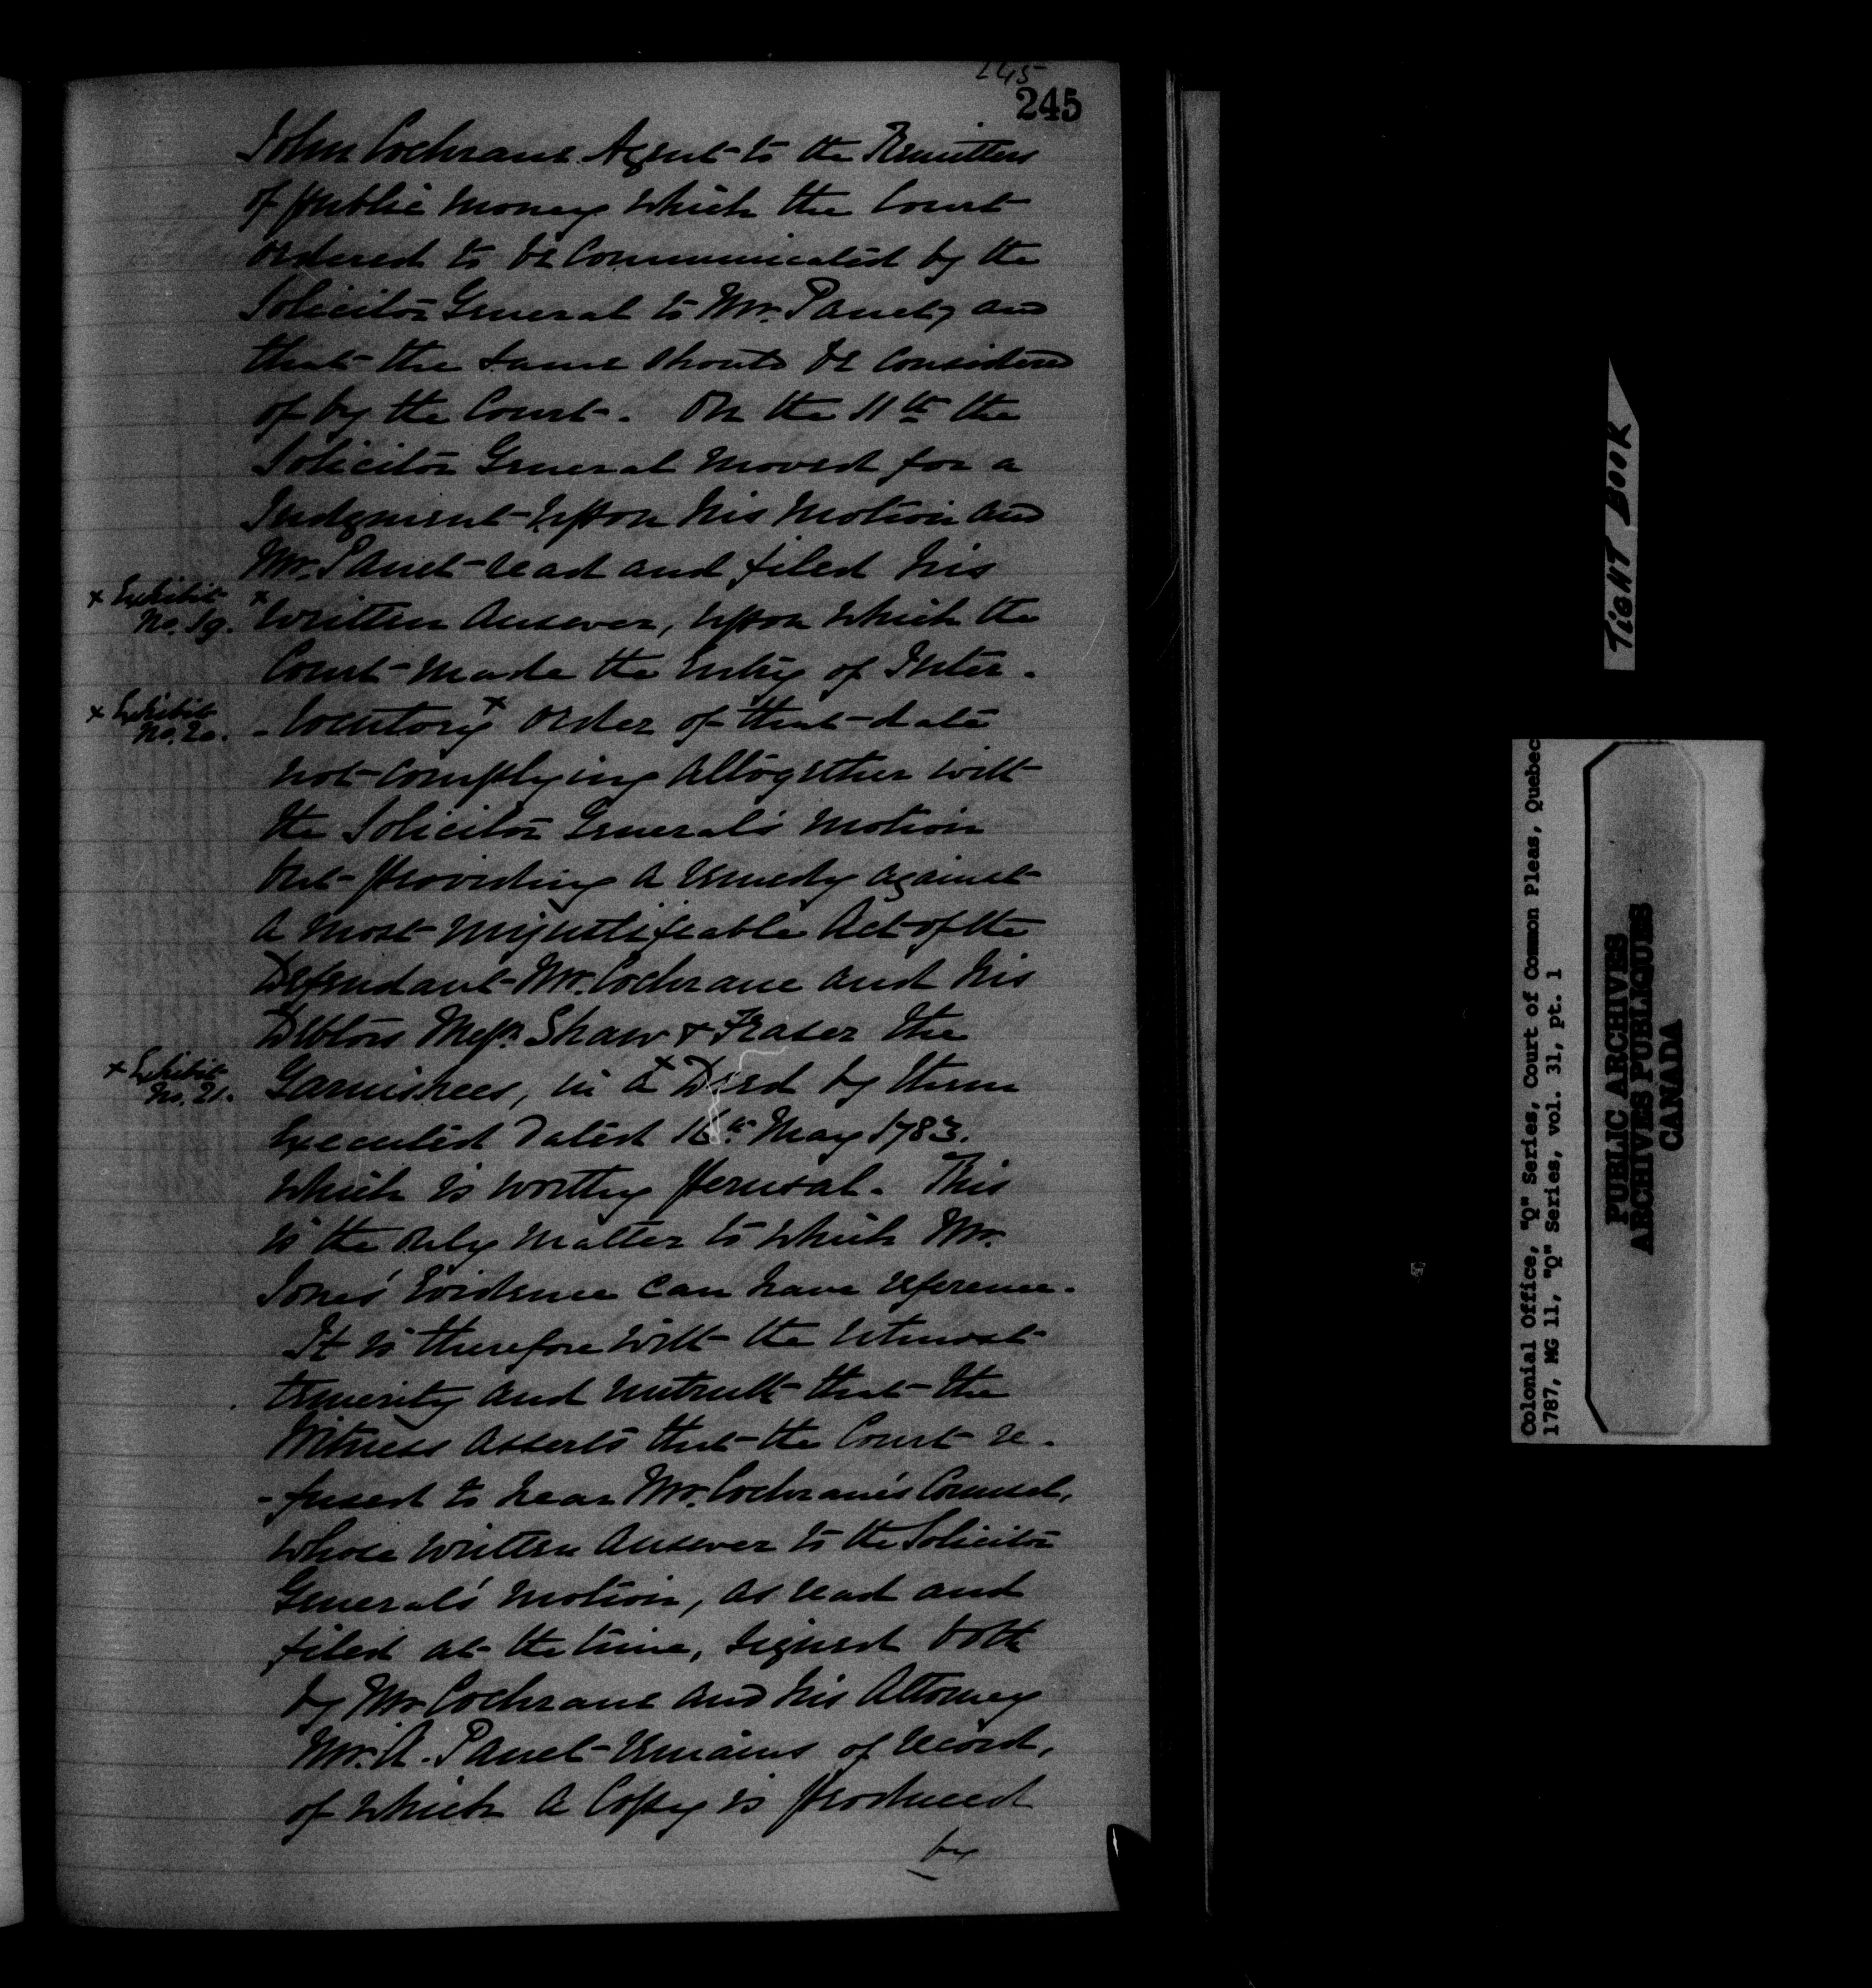 245
245
John Cochrane Agent to the Remitters
of public money which the Court
ordered to be Communicated by the
Solicitor General to Mr. Panet, and
that the same should be considered
of by the Court. On the 11th the
Solicitor General moved for a
Judgment upon his motion and
Mr. Panet read and filed his
x Exhibit
No. 19.
x written answer, upon which the
Court made the Entry of Inter-
x Exhibit
No. 20.
-locutory x order of that date
not complying altogether with
the Solicitor General's motion
but providing a remedy against
a most unjustifiable Act of the
Defendant Mr. Cochrane and his
Debtors Messrs. Shaw & Fraser the
x Exhibit
No. 21.
Garnishees, in a x Deed by them
executed dated 16th May 1783.
which is worthy perusal. This
is the only matter to which Mr.
Jones' Evidence can have reference.
It is therefore with the utmost
temerity and untruth that the
Witness asserts that the Court re-
-fused to hear Mr. Cochrane's Counsel,
whose written answer to the Solicitor
General's motion, as read and
filed at the time, signed both
by Mr Cochrane and his Attorney
Mr. A. Panet remains of record,
of which a Copy is produced
by
TIGHT BOOK
Colonial Office, "Q" Series, Court of Common Pleas, Quebec
1787, MG 11, "Q" Series, vol. 31, pt. 1
PUBLIC ARCHIVES
ARCHIVES PUBLIQUES
CANADA